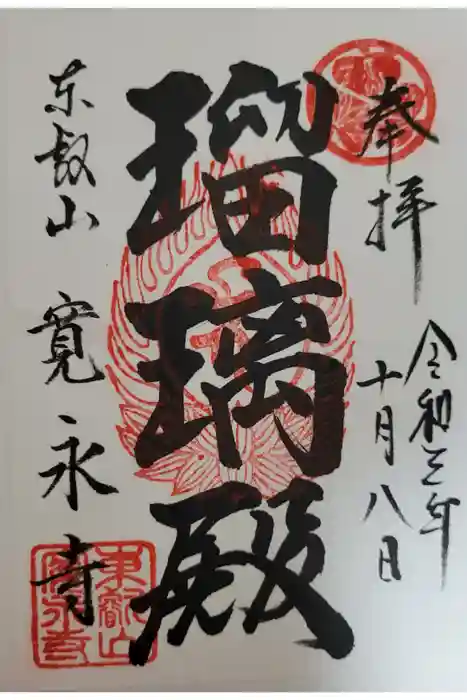 奉拝
令和三年
十月八日
瑠璃殿
東叡山 寛永寺
東叡山
寛永寺